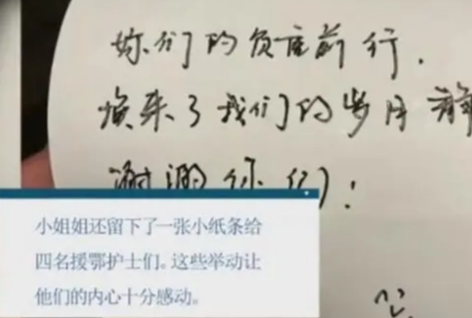 你们的负重前行，
换来了我们的岁月静
谢谢你们！
小姐姐还留下了一张小纸条给
四名援鄂护士们。这些举动让
他们的内心十分感动。